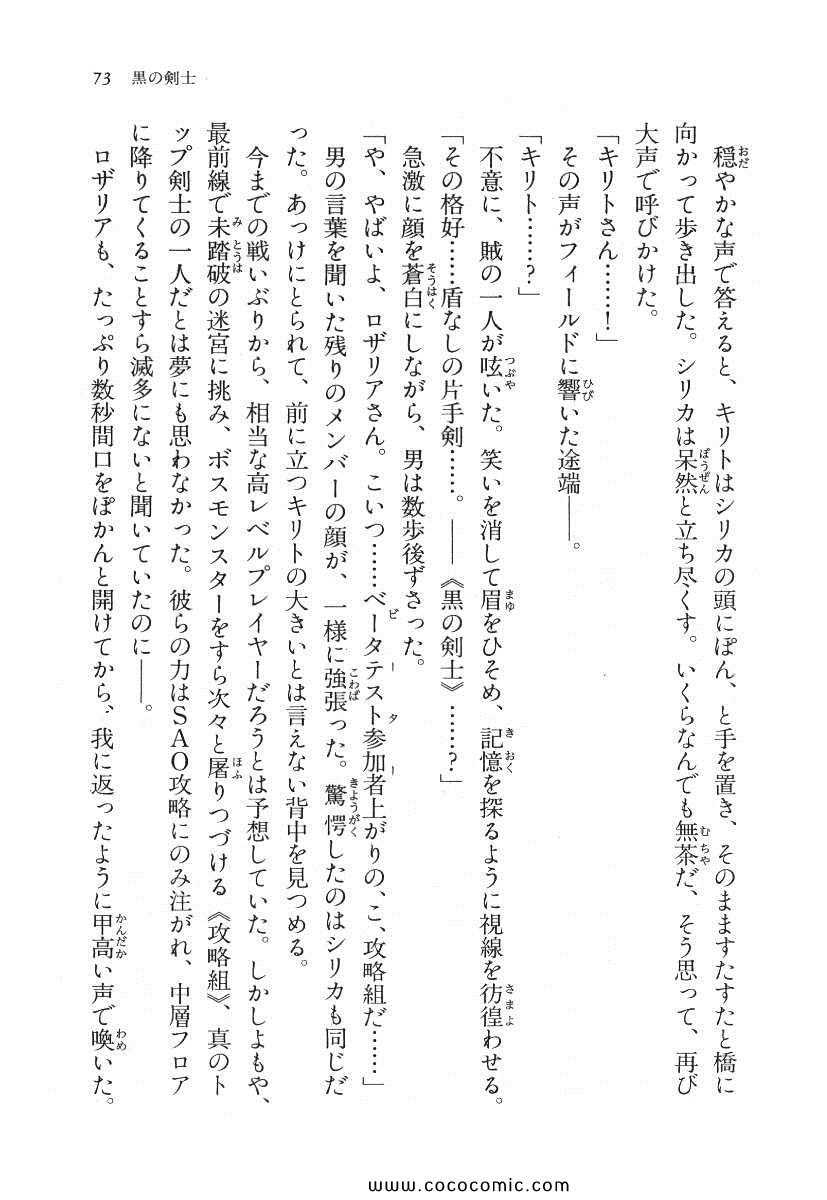 73　黒の剣士
　穏やかな声で答えると、キリトはシリカの頭にぽん、と手を置き、そのまますたすたと橋に
向かって歩き出した。シリカは呆然と立ち尽くす。いくらなんでも無茶だ、そう思って、再び
大声で呼びかけた。
「キリトさん……！」
　その声がフィールドに響いた途端――。
「キリト……？」
　不意に、賊の一人が呟いた。笑いを消して眉をひそめ、記憶を探るように視線を彷徨わせる。
「その格好……盾なしの片手剣……。――《黒の剣士》……？」
　急激に顔を蒼白にしながら、男は数歩後ずさった。
「や、やばいよ、ロザリアさん。こいつ……ベータテスト参加者上がりの、こ、攻略組だ……」
　男の言葉を聞いた残りのメンバーの顔が、一様に強張った。驚愕したのはシリカも同じだ
った。あっけにとられて、前に立つキリトの大きいとは言えない背中を見つめる。
　今までの戦いぶりから、相当な高レベルプレイヤーだろうとは予想していた。しかしよもや、
最前線で未踏破の迷宮に挑み、ボスモンスターをすら次々と屠りつづける《攻略組》、真のト
ップ剣士の一人だとは夢にも思わなかった。彼らの力はSAO攻略にのみ注がれ、中層フロア
に降りてくることすら滅多にないと聞いていたのに――。
　ロザリアも、たっぷり数秒間口をぽかんと開けてから、我に返ったように甲高い声で喚いた。
www.cococomic.com